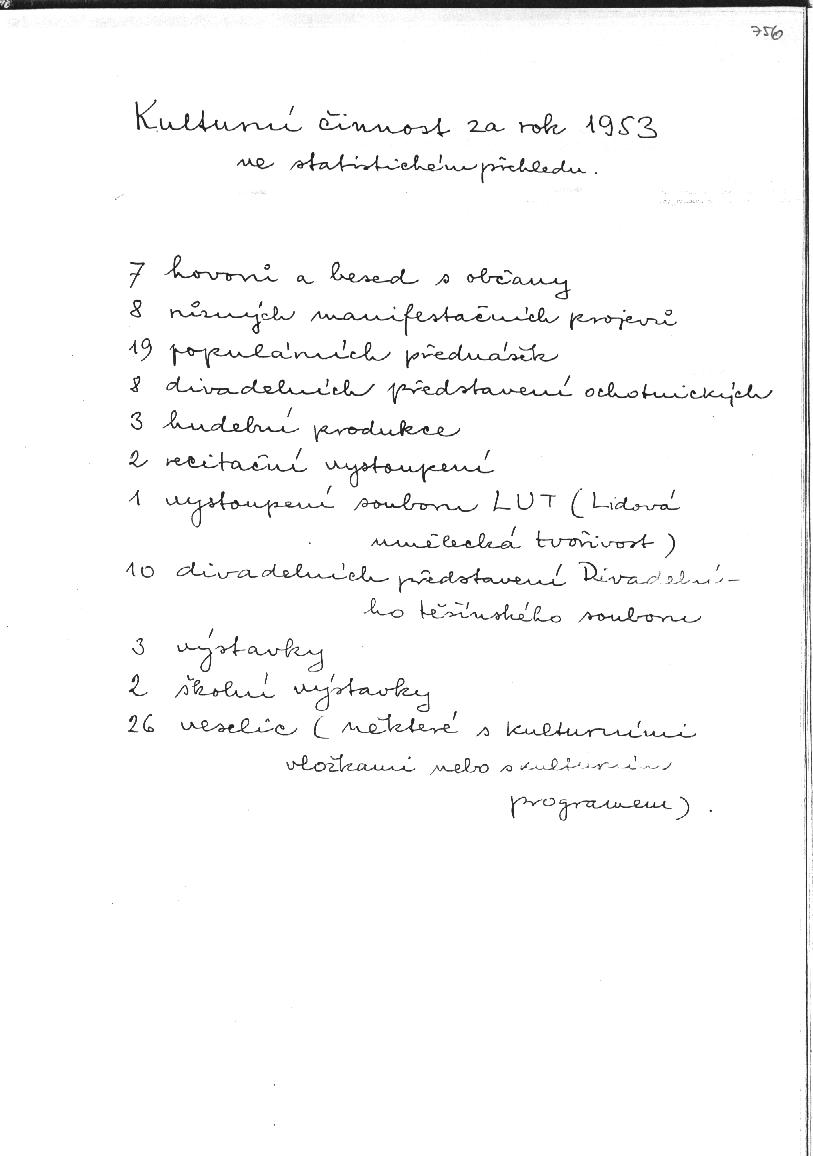 756
Kulturní činnost za rok 1953
ve statistickém přehledu.
7 hovorů a besed s občany
8 různých manifestačních projevů
19 populárních přednášek
8 divadelních představení ochotnických
3 hudební produkce
2 recitační vystoupení
1 vystoupení souboru LUT (Lidová
umělecká tvořivost)
10 divadelních představení Divadelní-
ho těšínského souboru
3 výstavky
2 školní výstavky
26 veselic (některé s kulturními
vložkami nebo s kulturním
programem).